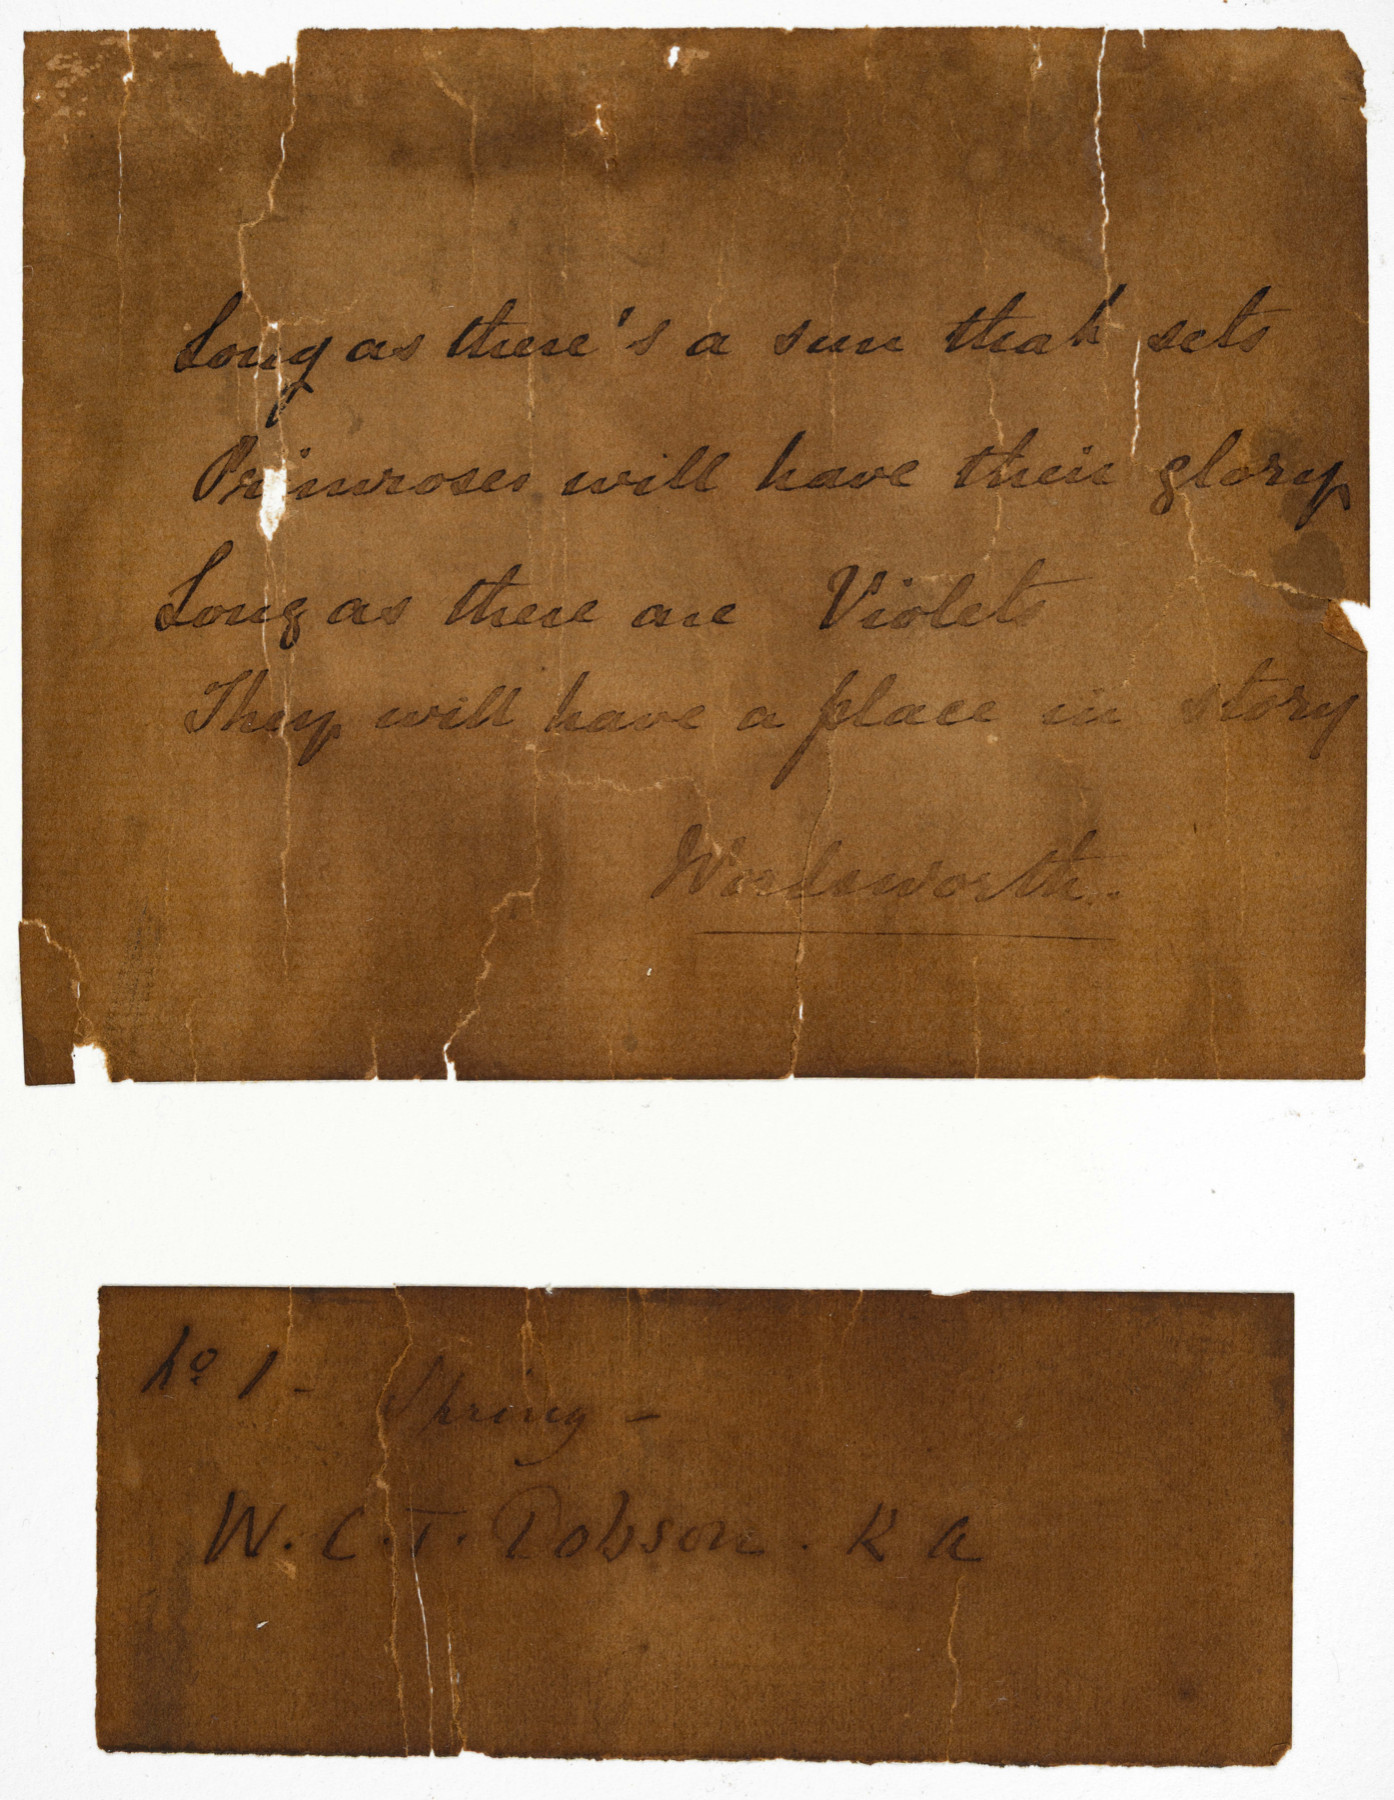 Long as there's a sun that sets
Primroses will have their glory
Long as there are Violets
They will have a place in story
Wordsworth.
No 1 -
Spring -
W. C. T. Dobson. R A